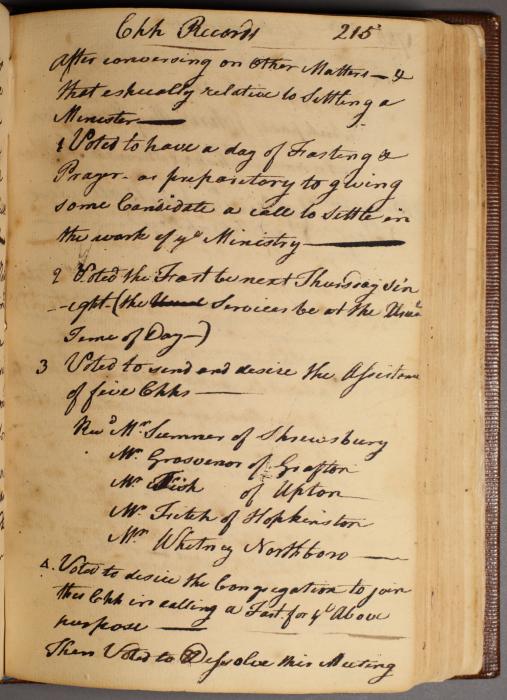 Chh Records 215
After conversing on Other Matters — &
that especially relative to Settling a
Minister —
1 Voted to have a day of Fasting &
Prayer - as preparitory to giving
some Candidate a call to Settle in
the work of ye Ministry —
2 Voted the Fast be next Thursday Sin
- ight - (the Usual Services be at the Usual
Time of Day -)
3 Voted to send and desire the Assistance
of five Chhs —
Revd Mr Sumner of Shrewsbury
Mr Grosvenor of Grafton
Mr Fish of Upton
Mr Fitch of Hopkinston
Mr Whitney Northboro —
4. Voted to desire the Congregation to join
this Chh in calling a Fast for ye Above
purpose —
Then Voted to Dessolve this Meeting